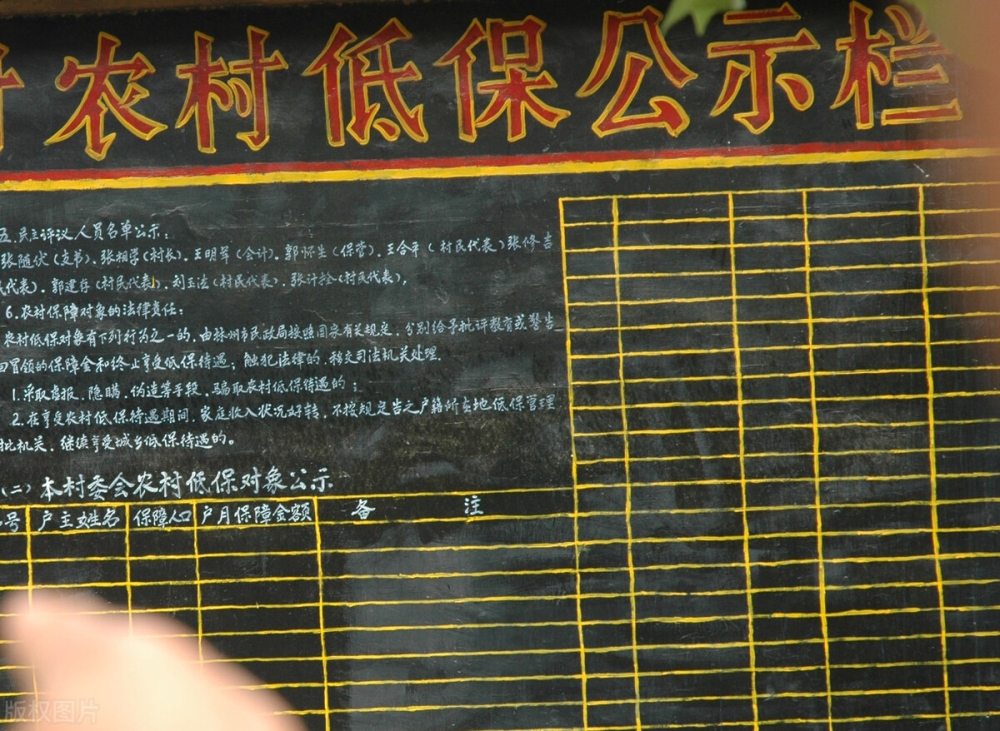 农村低保公示栏
五.民主评议人员名单公示:
张随伏(支书).张相学(村长).王明军(会计).郭怀生(保管).王合平(村民代表)张修吉
代表).郭建存(村民代表).刘玉法(村民代表).张计拴(村民代表),
6.农村保障对象的法律责任:
农村低保对象有下列行为之一的,由林州市民政局按照国家有关规定,分别给予批评教育或警告
回冒领的保障金和终止享受低保待遇;触犯法律的,移交司法机关处理.
1.采取虚报、隐瞒、伪造等手段,骗取农村低保待遇的;
2.在享受农村低保待遇期间,家庭收入状况好转,不按规定告之户籍所在地低保管理
批机关,继续享受城乡低保待遇的。
(二)本村委会农村低保对象公示
号 户主姓名 保障人口 户月保障金额 备注
版权图片